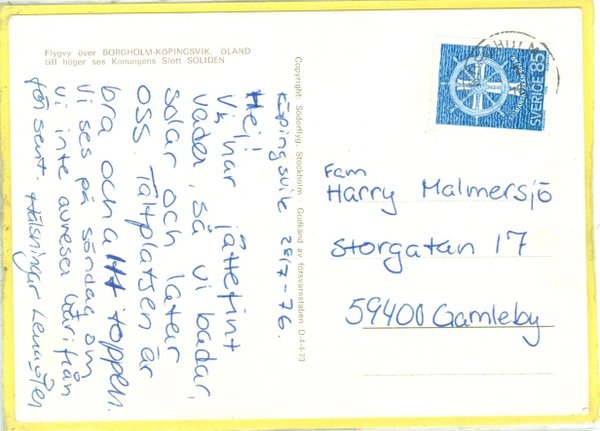 Flygvy över BORGHOLM-KÖPINGSVIK, ÖLAND
till höger ses Konungens Slott SOLIDEN
Köpingsvik 28/7-76.
Hej!
Vi har jättefint
väder, så vi badar,
solar och latar
oss. Tältplatsen är
bra och allt toppen.
Vi ses på söndag om
vi inte avresa härifrån
för sent. Hälsningar
Copyright Söderflyg, Stockholm - Godkänd av försvarsstaben D-4-4-73
SVERIGE 85
Fam
Harry Malmersjö
Storgatan 17
59400 Gamleby